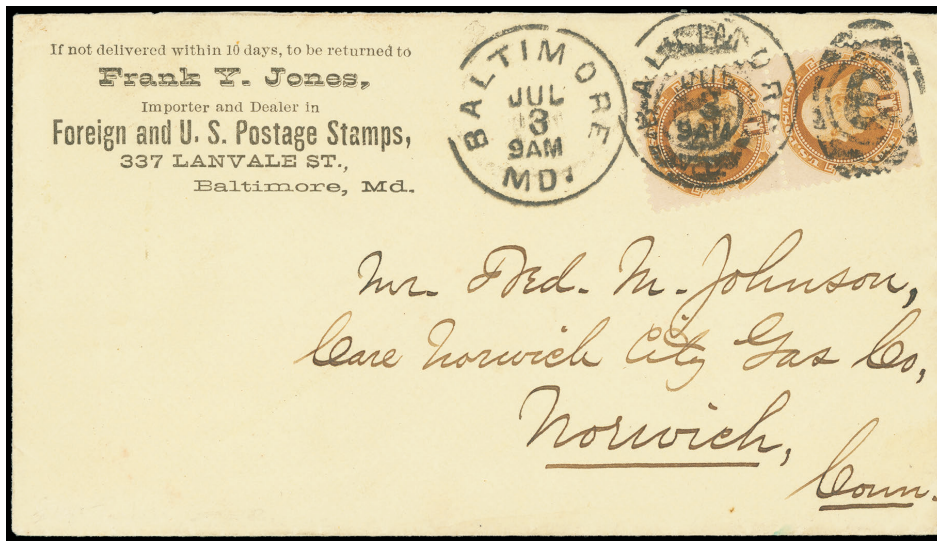 If not delivered within 10 days, to be returned to
Frank Y. Jones,
Importer and Dealer in
Foreign and U. S. Postage Stamps,
337 LANVALE ST.,
Baltimore, Md.
BALTIMORE
JUL
3
9AM
MD.
BALTIMORE
3
9AM
Mr. Fred. M. Johnson,
Care Norwich City Gas Co,
Norwich,
Conn.